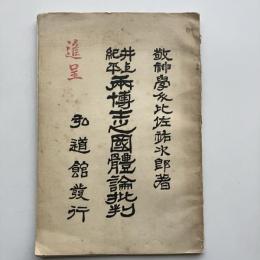 敬神學人比佐祐次郎著
井上
紀平
兩博士之國體論批判
弘道館發行
進呈